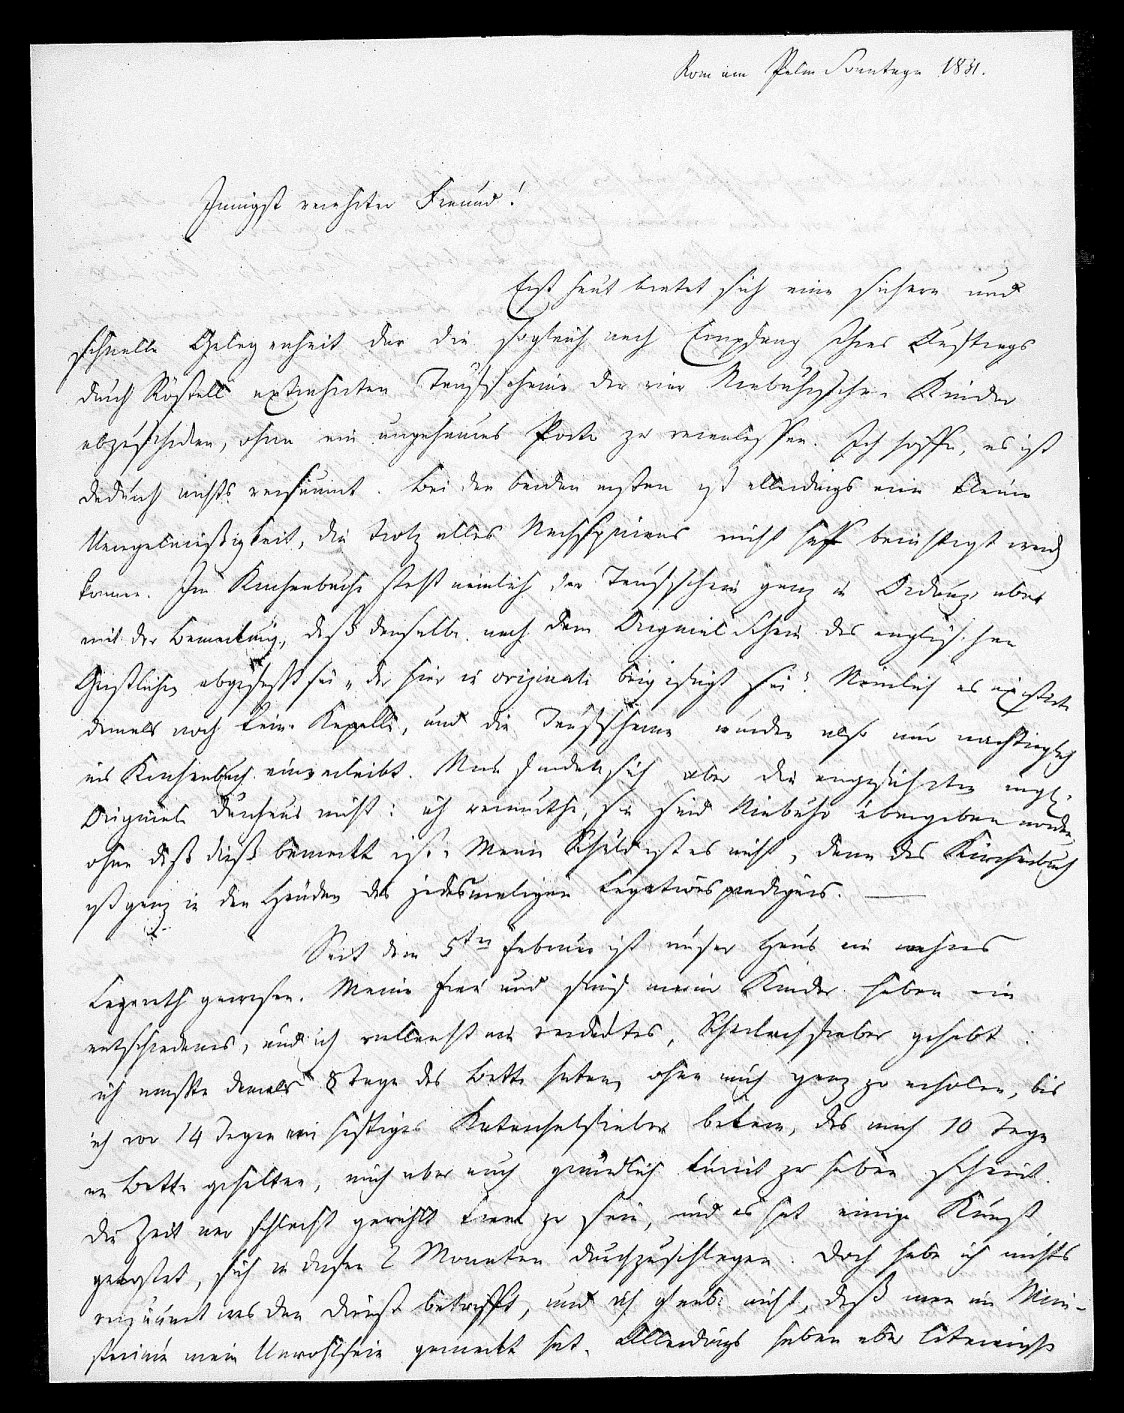 Rom am Palm Sonntage 1831.
Innigst verehrter Freund!
Erst heut bietet sich eine sichere und
schnelle Gelegenheit dar die sogleich nach Empfang Ihres Auftrags
durch Röstell extrahirten Taufscheine der vier Niebuhrschen Kinder
abzuschicken, ohne ein ungeheures Porto zu veranlassen. Ich hoffe, es ist
dadurch nichts versäumt. Bei den beiden ersten ist allerdings eine kleine
Unregelmäßigkeit, die trotz alles Nachspürens nicht hat berichtigt werden
können. Im Kirchenbuche steht nämlich der Taufschein ganz in Ordnung, aber
mit der Bemerkung, daß derselbe nach dem Original Schein des englischen
Geistlichen abgefaßt sei „der hier in originali beigefügt sei“. Nämlich es existirte
damals noch keine Kapelle, und die Taufscheine wurden also nur nachträglich
ins Kirchenbuch einverleibt. Nun findet sich aber die angeführten engl.
Originale durchaus nicht: ich vermuthe, sie sind Niebuhr übergeben worden,
ohne daß dieß bemerkt ist. Meine Schuld ist es nicht, denn das Kirchenbuch
ist ganz in den Händen des jedesmaligen Legationspredigers. —
Seit dem 5ten Februar ist unser Haus ein wahres
Lazareth gewesen. Meine Frau und fünf meiner Kinder haben ein
entschiedenes, und ich vielleicht ein verstecktes, Scharlachfieber gehabt:
ich mußte damals 8 Tage das Bett hüten, ohne mich ganz zu erholen, bis
ich vor 14 Tagen ein heftiges Katarrhalfieber bekam, das mich 10 Tage
im Bette gehalten, mich aber auch gründlich kurirt zu haben scheint.
Die Zeit war schlecht gewählt krank zu sein, und es hat einige Kunst
gekostet, sich in diesen 2 Monaten durchzuschlagen. Doch habe ich nichts
versäumt was den Dienst betrifft, und ich glaube nicht, daß man im Mini-
sterium mein Unwohlsein gemerkt hat. Allerdings haben aber literarische